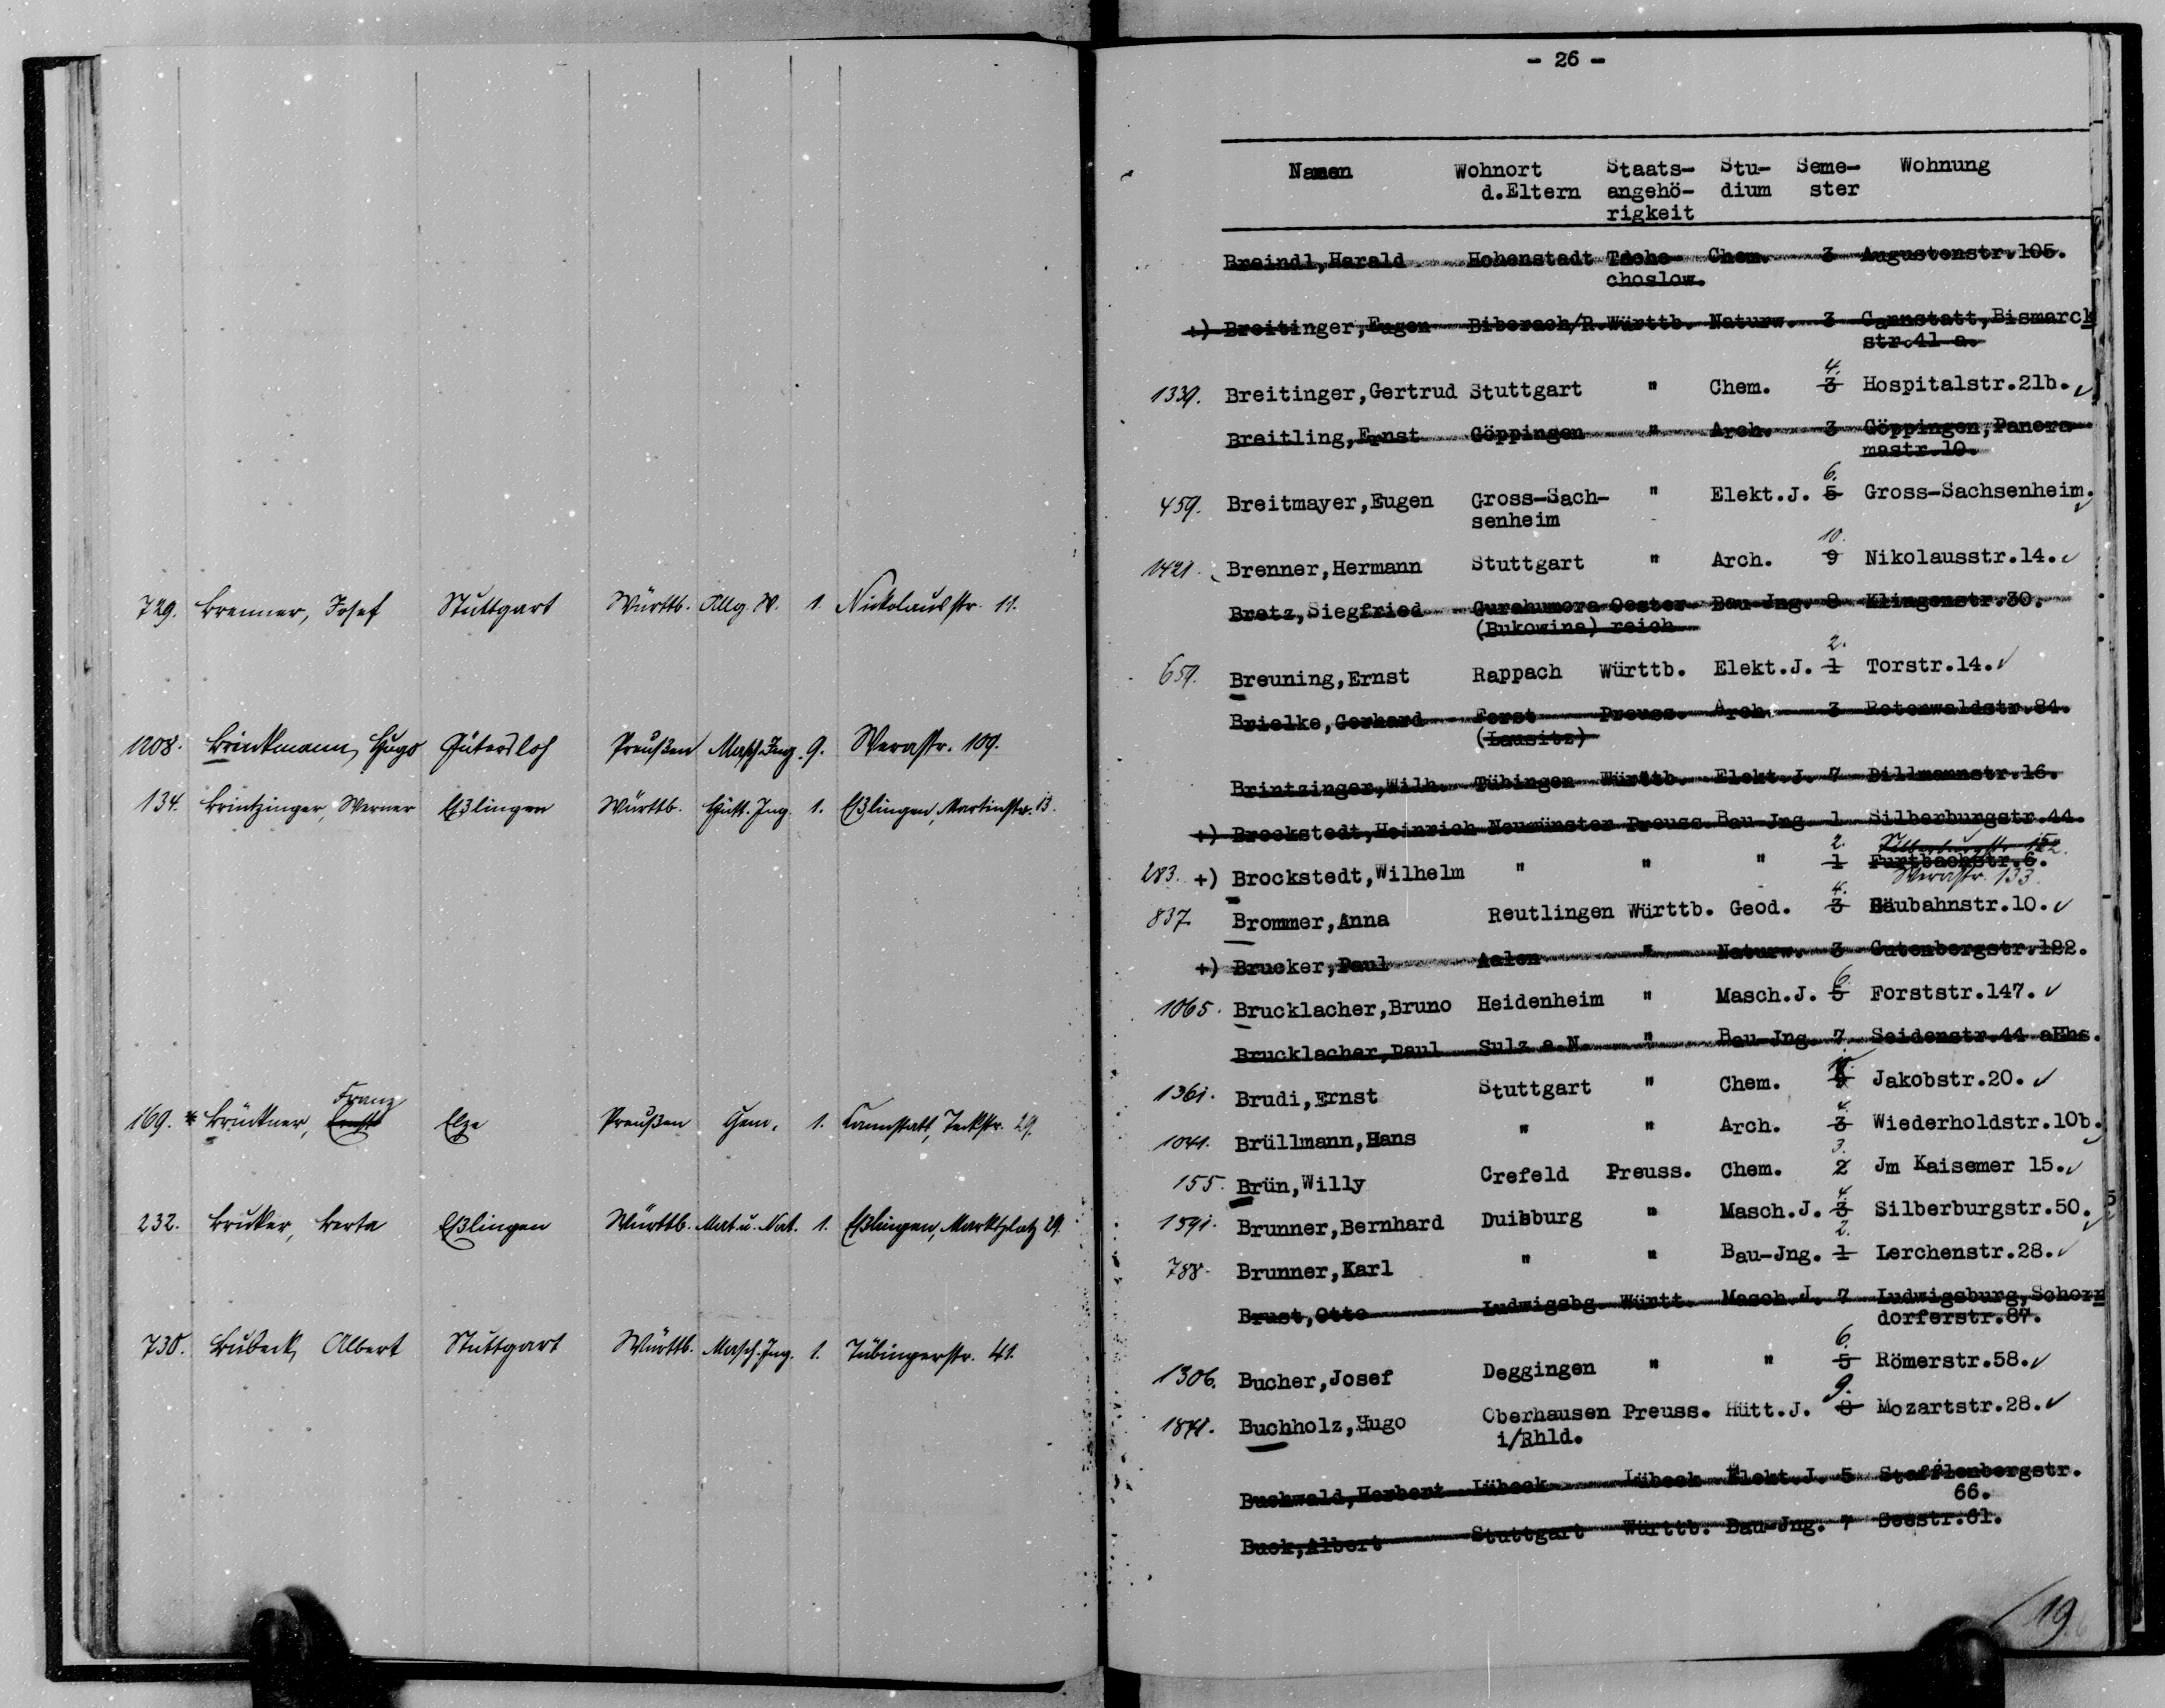 729. Brenner, Josef Stuttgart Württb. Allg. W. 1. Nickolausstr. 11.
1208. Brinkmann, Hugo Gütersloh Preußen Masch. Ing. 9. Werastr. 109.
134. Brintzinger, Werner Eßlingen Württb. Hütt. Ing. 1. Eßlingen, Martinstr. 13.
Franz
169. * Brückner, Elze Preußen 1. Cannstatt, Teckstr. 29.
232. Bruker, Berta Eßlingen Württb. Mat. u. Nat. 1. Eßlingen, Marktplatz 29.
730. Bubeck, Albert Stuttgart Württb. Masch. Ing. 1. Tübingerstr. 41.
- 26 -
Namen Wohnort Staats- Stu- Seme- Wohnung
d.Eltern angehö- dium ster
rigkeit
Breindl,Harald Hohenstadt Tsche- Chem. 3 Augustenstr.105.
choslow.
+) Breitinger,Eugen Biberach/R. Württb. Naturw. 3 Cannstatt,Bismarck
str.41 a.
4.
1339. Breitinger,Gertrud Stuttgart " Chem. 3 Hospitalstr.21b. ✓
Breitling,Ernst Göppingen " Arch. 3 Göppingen,Panora-
mastr.10.
6.
459. Breitmayer,Eugen Gross-Sach- " Elekt.J. 5 Gross-Sachsenheim. ✓
senheim
10.
1421. Brenner,Hermann Stuttgart " Arch. 9 Nikolausstr.14. ✓
Bretz,Siegfried Gurahumora Oester- Bau-Jng. 8 Klingenstr.30.
(Bukowina) reich
2.
659. Breuning,Ernst Rappach Württb. Elekt.J. 1 Torstr.14. ✓
Brielke,Gerhard Forst Preuss. Arch. 3 Rotenwaldstr.84.
(Lausitz)
Brintzinger,Wilh. Tübingen Württb. Elekt.J. 7 Dillmannstr.16.
+) Brockstedt,Heinrich Neumünster Preuss. Bau-Jng. 1 Silberburgstr.44.
2. Silberburgstr. 152.
283. +) Brockstedt,Wilhelm " " " 1 Furtbachstr.6.
Werastr. 133.
4.
837. Brommer,Anna Reutlingen Württb. Geod. 3 Gäubahnstr.10. ✓
+) Brucker,Paul Aalen " Naturw. 3 Gutenbergstr.122.
6.
1065. Brucklacher,Bruno Heidenheim " Masch.J. 5 Forststr.147. ✓
Brucklacher,Paul Sulz a.N. " Bau-Jng. 7 Seidenstr.44 aHhs.
1361. Brudi,Ernst Stuttgart " Chem. Jakobstr.20. ✓
4.
1041. Brüllmann,Hans " " Arch. 3 Wiederholdstr.10b. ✓
3.
155. Brün,Willy Crefeld Preuss. Chem. 2 Jm Kaisemer 15. ✓
4.
1591. Brunner,Bernhard Duisburg " Masch.J. 3 Silberburgstr.50. ✓
2.
788. Brunner,Karl " " Bau-Jng. 1 Lerchenstr.28. ✓
Brust,Otto Ludwigsbg. Württ. Masch.J. 7 Ludwigsburg,Schorn
dorferstr.87.
6.
1306. Bucher,Josef Deggingen " " 5 Römerstr.58. ✓
9.
1841. Buchholz,Hugo Oberhausen Preuss. Hütt.J. 8 Mozartstr.28. ✓
i/Rhld.
Buchwald,Herbert Lübeck Lübeck Elekt.J. 5 Stafflenbergstr.
66.
Buck,Albert Stuttgart Württb. Bau-Jng. 7 Seestr.61.
19